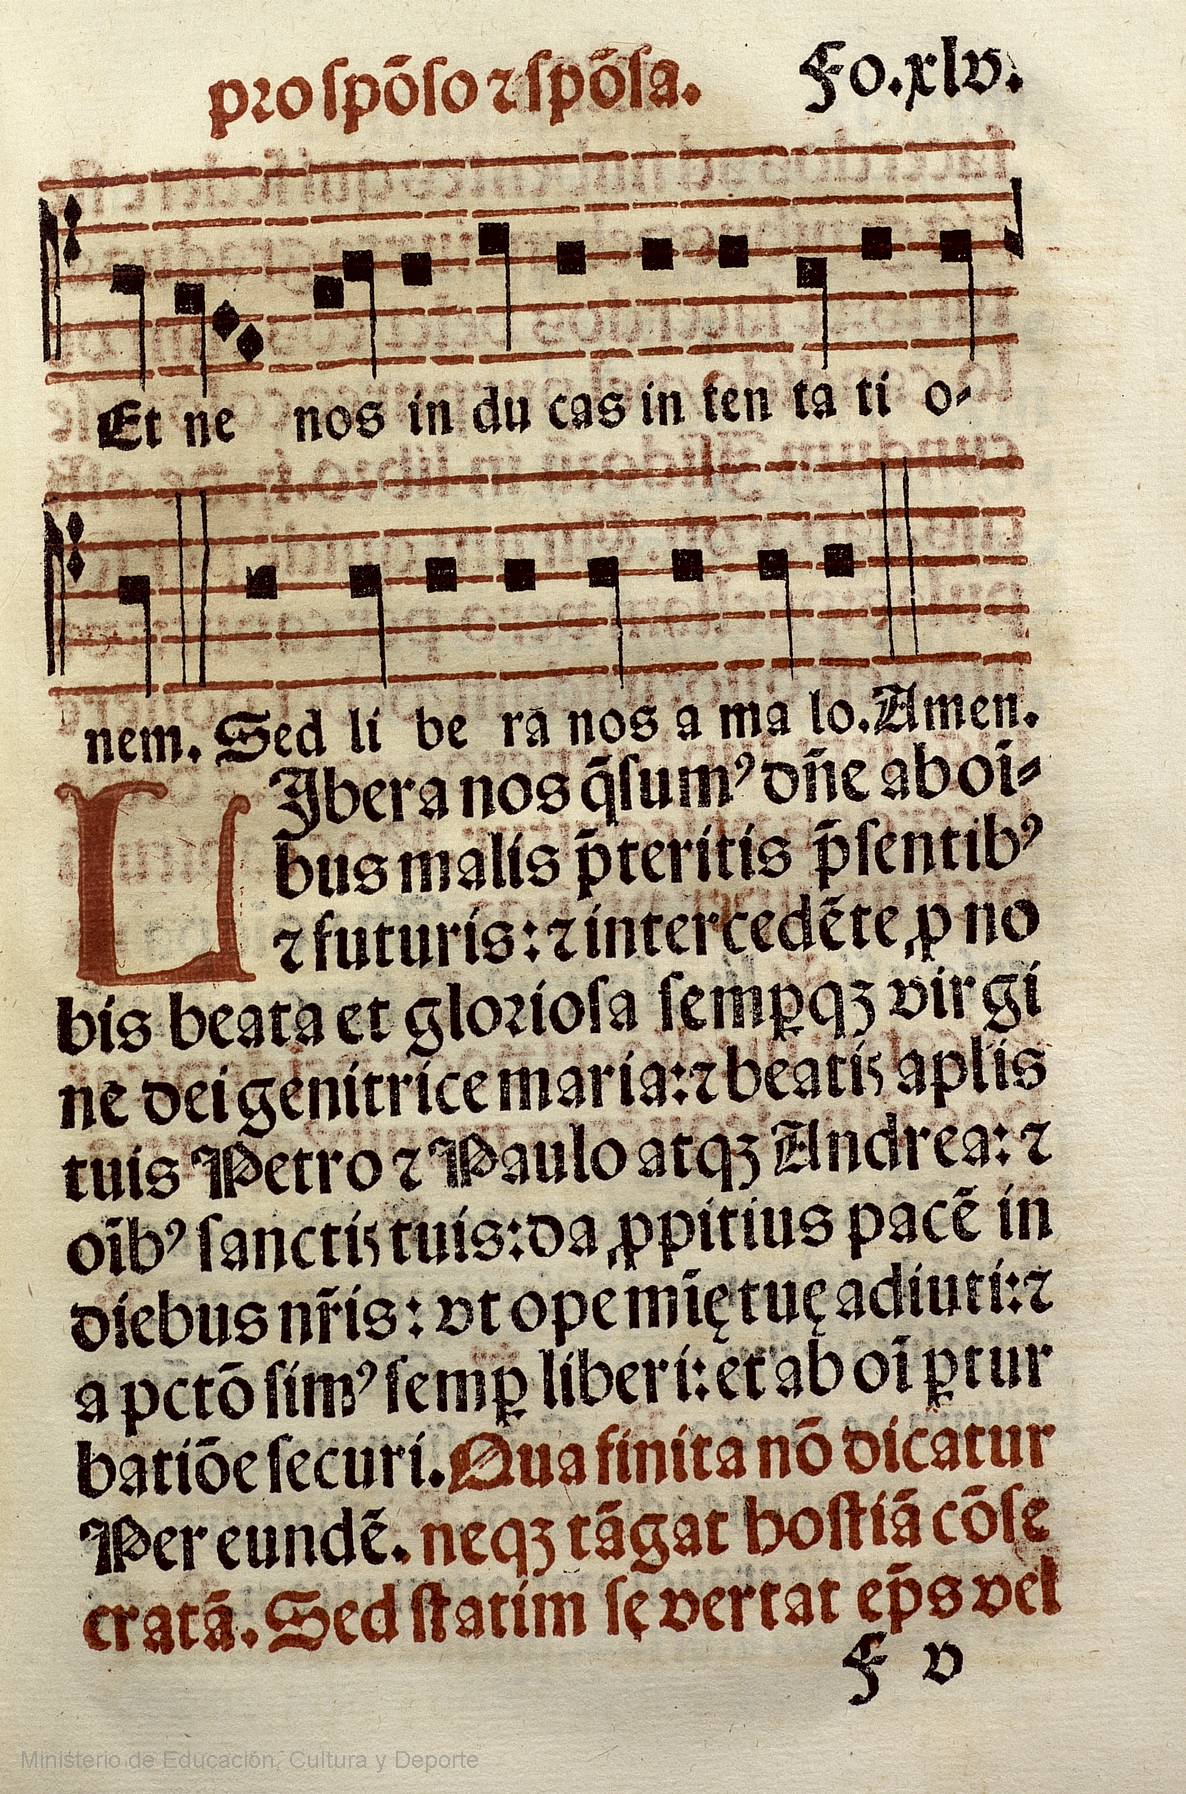 pro spōso ⁊ spōsa. Fo.xlv.
Et ne nos in du cas in ten ta ti o-
nem. Sed li be rā nos a ma lo. Amen.
LIbera nos q̄sumꝰ dn̄e ab oī-
bus malis p̄teritis p̄sentibꝰ
⁊ futuris: ⁊ intercedēte ꝓ no
bis beata et gloriosa semꝑqꝫ virgi
ne dei genitrice maria: ⁊ beatis apl̄is
tuis Petro ⁊ Paulo atqꝫ Andrea: ⁊
oībꝰ sanctis tuis: da ꝓpitius pacē in
diebus nr̄is: vt ope mīę tuę adiuti: ⁊
a pctō simꝰ semꝑ liberi: et ab oī ꝑtur
batiōe securi. Qua finita nō dicatur
Per eundē. neqꝫ tāgat hostiā cōse
cratā. Sed statim sę vertat ep̄s vel
F v
Ministerio de Educación, Cultura y Deporte